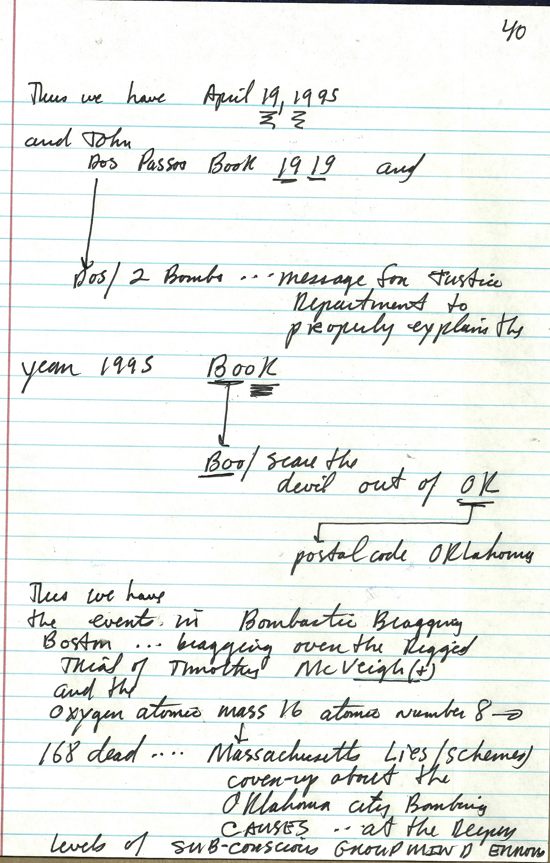 40
Thus we have April 19, 1995
and John
Dos Passos Book 1919 and
Dos/ 2 Bombs ... message for Justice
Department to
properly explain the
year 1995 BooK
Boo/ scare the
devil out of OK
postal code OKlahoma
Thus we have
the events in Bombastic Bragging
Boston ... bragging over the Rigged
Trial of Timothy McVeigh(t)
and the
Oxygen atomic mass 16 atomic number 8 →
168 dead .... Massachusetts Lies (schemes)
cover-up about the
OKlahoma city Bombing
CAUSES .. at the Deeper
levels of SUB-conscious GROUP MIND ERROR